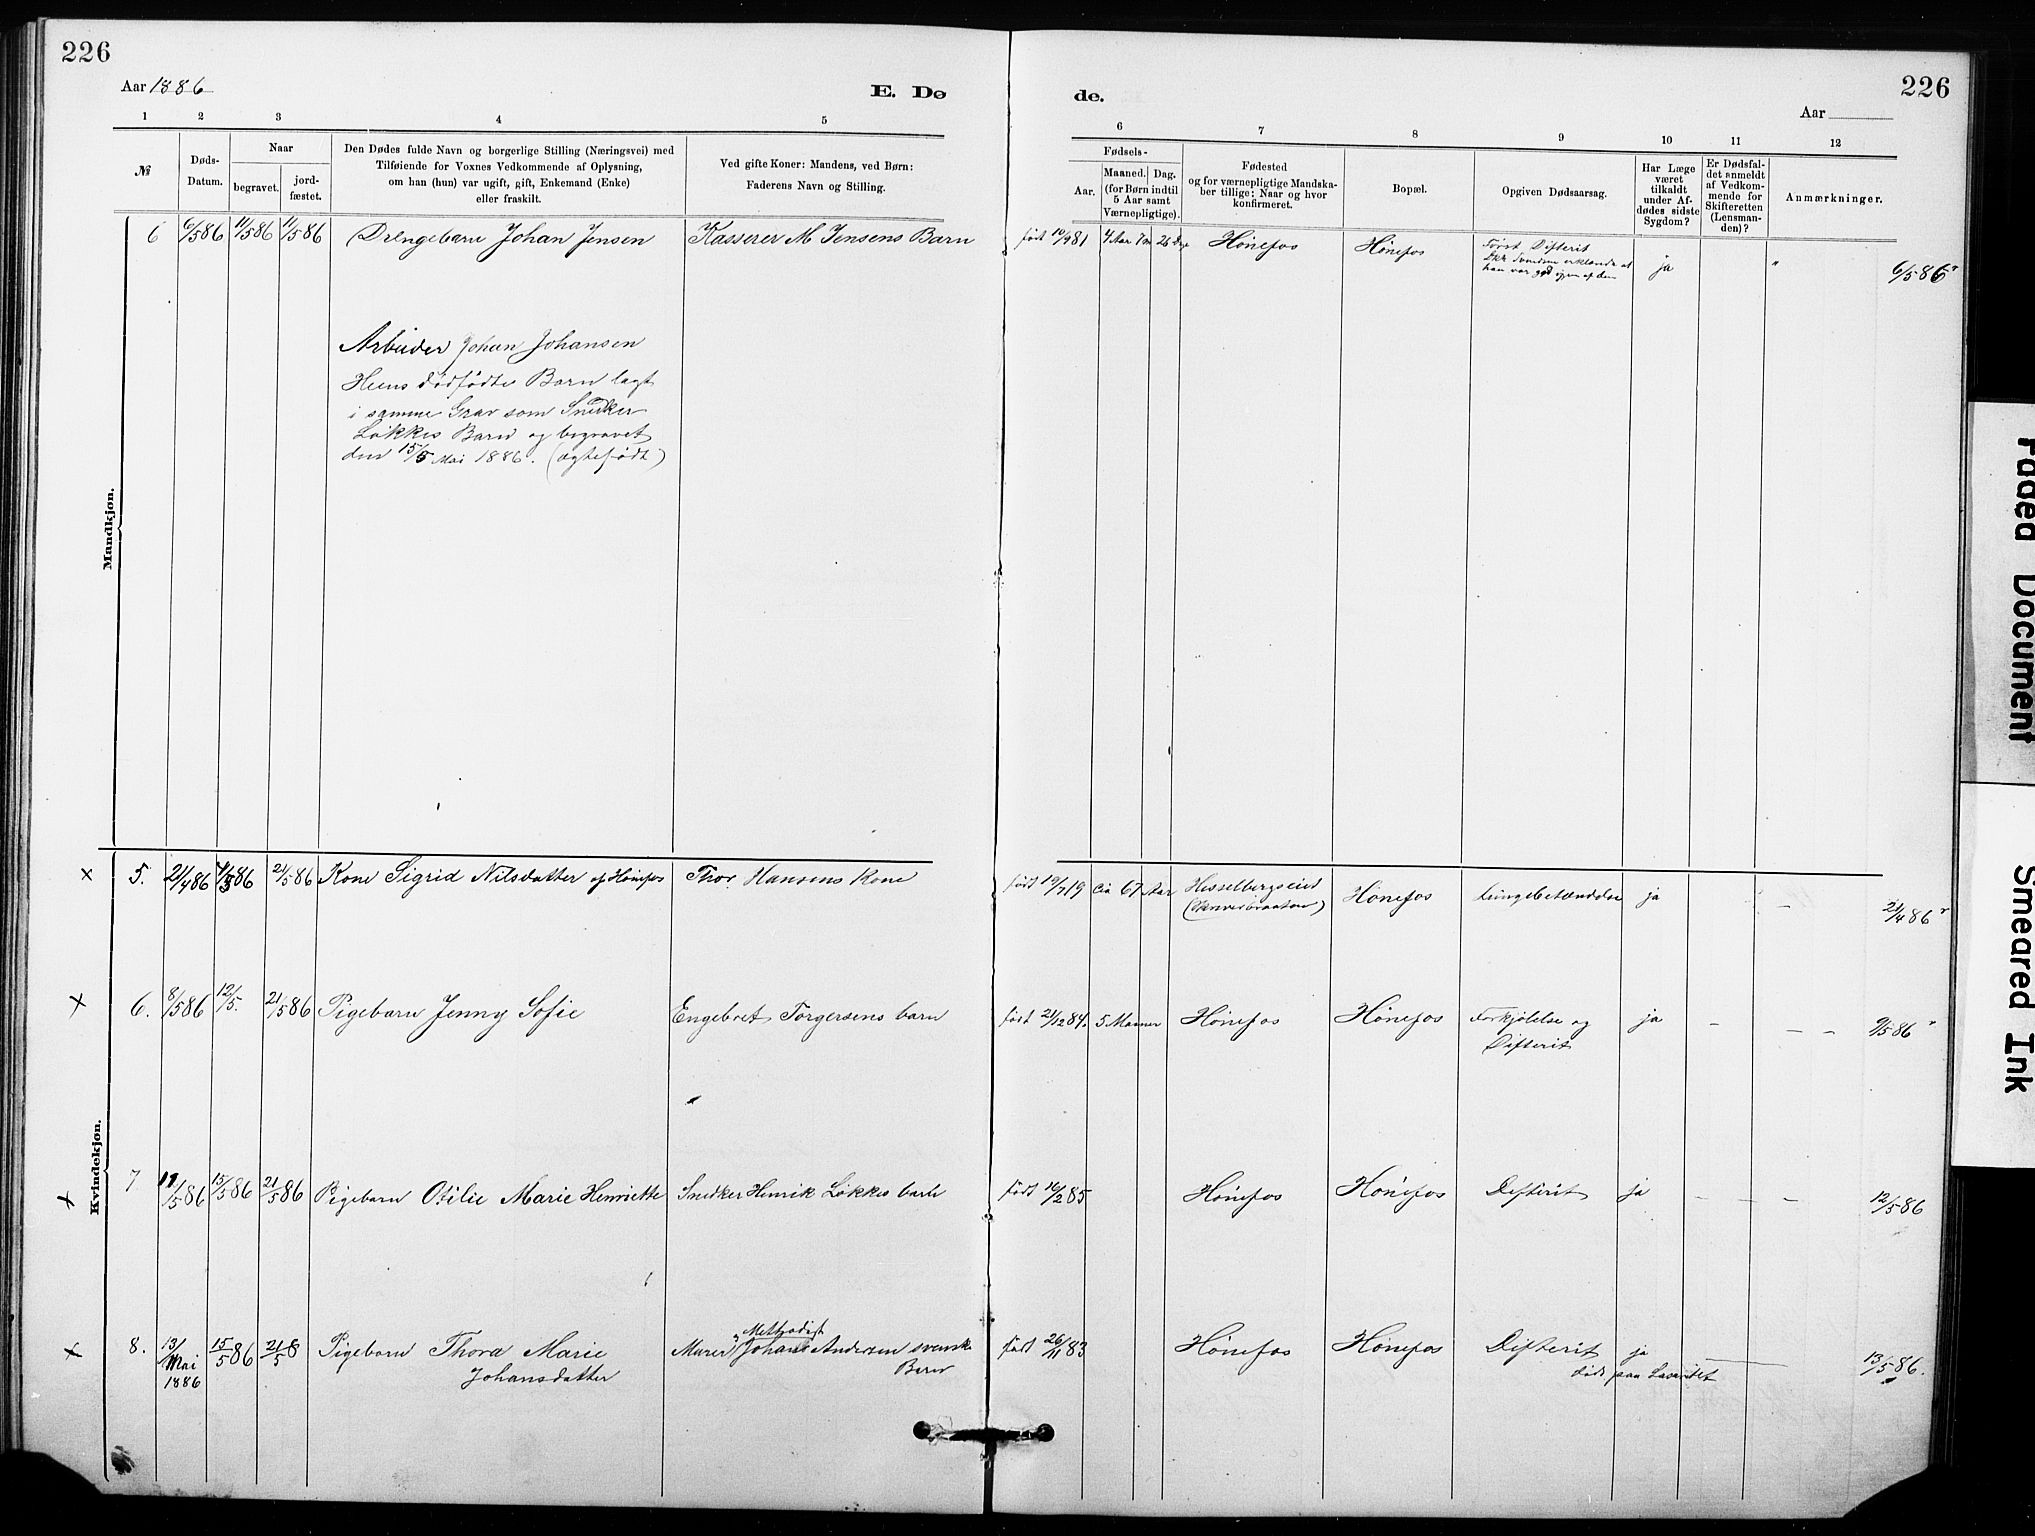 226
Aar 1886
E. Dø
de.
226
Aar
1
2
3
4
5
6
7
8
9
10
11
12
№
Døds-
Datum.
Naar
begravet.
jord-
fæstet.
Den Dødes fulde Navn og borgerlige Stilling (Næringsvei) med
Tilføiende for Voxnes Vedkommende af Oplysning,
om han (hun) var ugift, gift, Enkemand (Enke)
eller fraskilt.
Ved gifte Koner: Mandens, ved Børn:
Faderens Navn og Stilling.
Fødsels-
Aar.
Maaned. Dag.
(for Børn indtil
5 Aar samt
Værnepligtige).
Fødested
og for værnepligtige Mandska-
ber tillige: Naar og hvor
konfirmeret.
Bopæl.
Opgiven Dødsaarsag.
Har Læge
været
tilkaldt
under Af-
dødes sidste
Sygdom?
Er Dødsfal-
det anmeldt
af Vedkom-
mende for
Skifteretten
(Lensman-
den)?
Anmærkninger.
Mandkjøn.
6 6/586 11/586 11/586 Drengebarn Johan Jensen Kasserer M Jensens Barn født 10/981 4 Aar 7 m 26 Dge Hönefos Hönefos Først Difterit ja " 6/586
han var god igjen af den
Arbeider Johan Johansen
Heens dødfødte Barn lagt
i samme Grav som Snedker
Løkkes Barn og begravet
den 15/5 Mai 1886. (ægtefødt)
Kvindekjøn.
× 5. 21/486 21/586 Kone Sigrid Nilsdatter af Hönefos Thor Hansens Kone født 19/719 Ca 67 Aar Hesselbergseiet Hönefos Lungebetændelse ja – 21/486
× 6. 8/586 12/5. 21/586 Pigebarn Jenny Sofie Engebret Torgersens barn født 21/1284. 5 Maaner Hönefos Hönefos Forkjölelse og ja – – – 9/586
Difterit
× 7 11/586 15/586 21/586 Pigebarn Otilie Marie Henriette Snedker Henrik Løkkes barn født 16/285 Hönefos Hönefos Difterit ja – – – 12/586
× 8. 13/ Mai 1886 15/586 21/5 8 Pigebarn Thora Marie Murer Johans Andersen svensk født 26/1183 Hönefos Hönefos Difterit ja 13/586.
Methodist
Johansdatter
Barn
døde paa Lasarettet
Faded Document
Smeared Ink